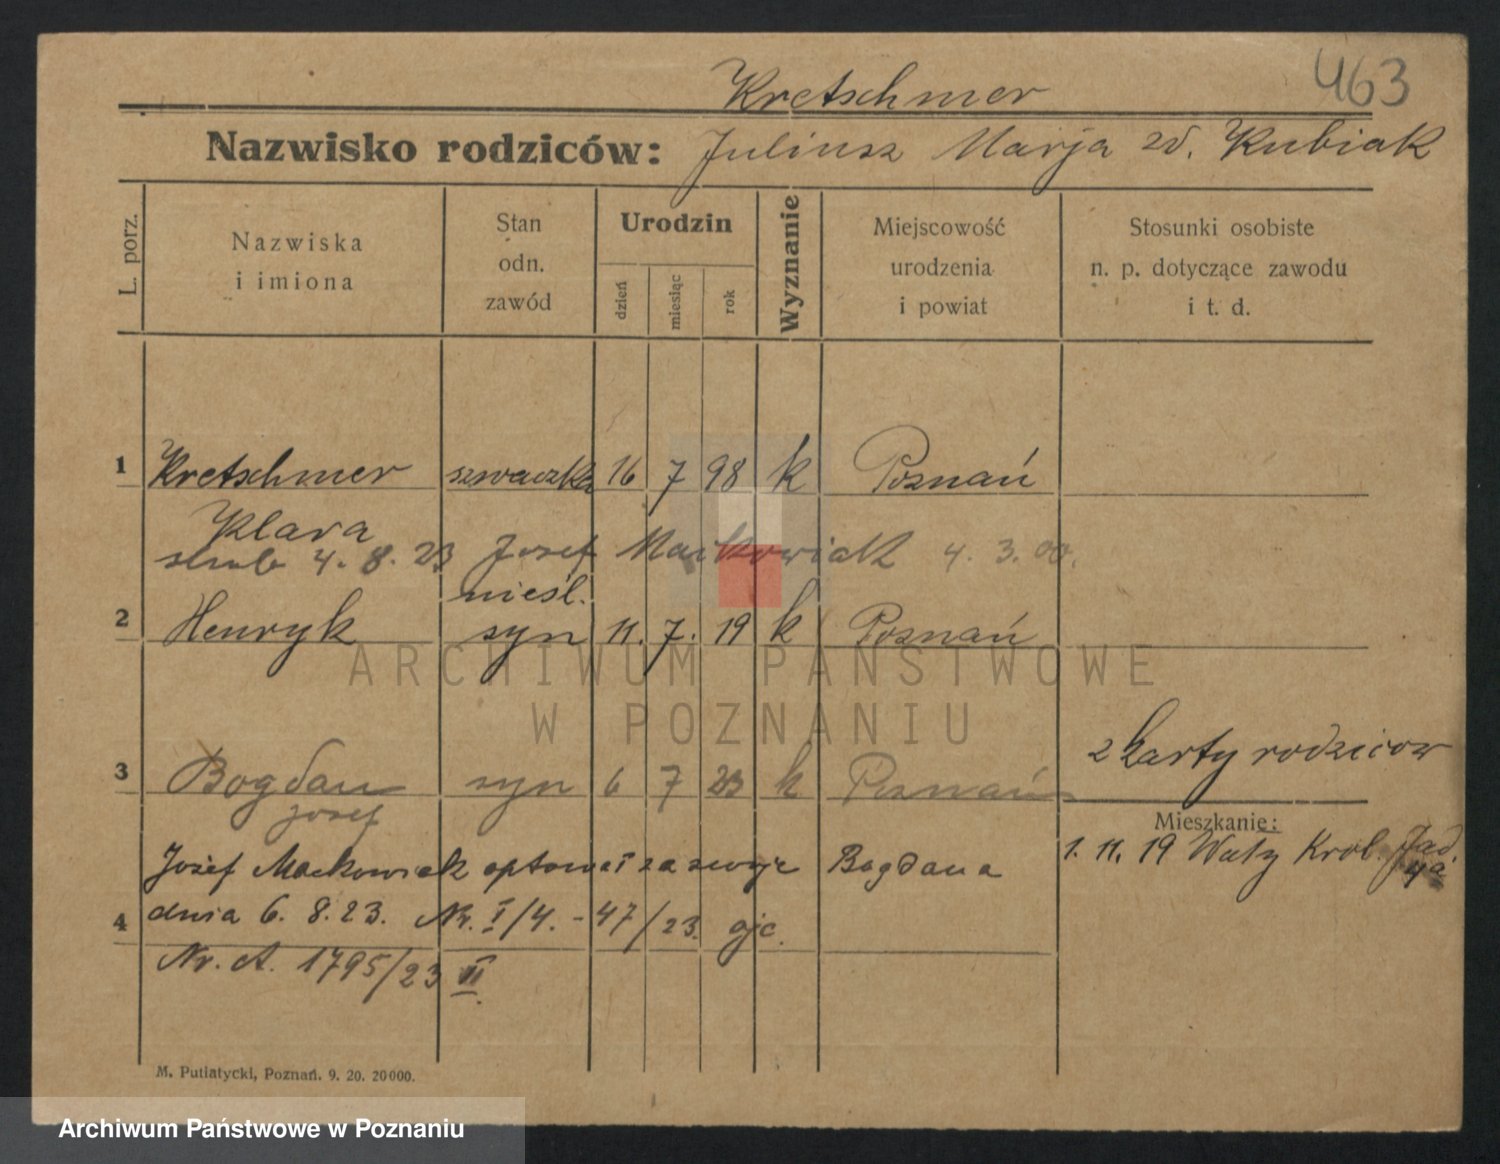 463
Kretschmer
Nazwisko rodziców: Juliusz Marja zd. Kubiak
L. porz.
Nazwiska
i imiona
Stan
odn.
zawód
Urodzin
dzień
miesiąc
rok
Wyznanie
Miejscowość
urodzenia
i powiat
Stosunki osobiste
n. p. dotyczące zawodu
i t. d.
1 Kretschmer szwaczka 16 7 98 k Poznań
Klara
ślub 4. 8. 23 Josef Maćkowiak 4. 3. 00.
nieśl.
2 Henryk syn 11. 7. 19 k Poznań
ARCHIWUM PAŃSTWOWE
W POZNANIU
z karty rodziców
3 Bogdan syn 6 7 23 k Poznań
Josef
Mieszkanie:
1. 11. 19 Wały Król. Jad.
4a
Józef Maćkowiak optował za swoje Bogdana
dnia 6. 8. 23. Nr. I/4. - 47/23. ojc.
4
Nr. A. 1795/23 II
M. Putiatycki, Poznań. 9. 20. 20000.
Archiwum Państwowe w Poznaniu